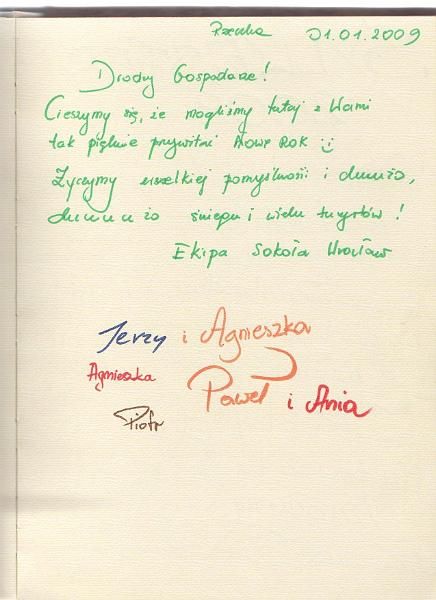 Rzeczka 01.01.2009
Drodzy Gospodarze!
Cieszymy się, że mogliśmy tutaj z Wami
tak pięknie przywitać Nowy Rok
Życzymy wszelkiej pomyślności i duuużo,
duuuużo śniegu i wielu turystów!
Ekipa Sokoła Wrocław
Jerzy i Agnieszka
Agnieszka Paweł i Ania
Piotr